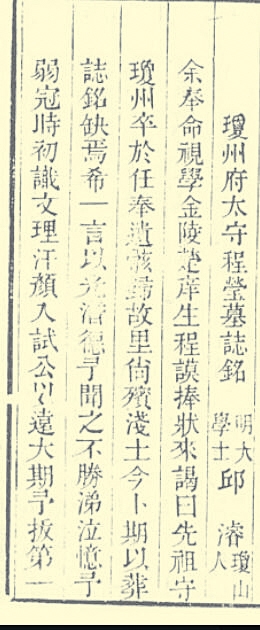 瓊州府太守程瑩墓誌銘 明大學士 邱濬 瓊山人
余奉命視學金陵庠生程謨捧狀來謁曰先祖守
瓊州卒於任奉遺骸歸故里尙殯淺土今卜期以葬
誌銘缺焉希一言以光潛德予聞之不勝涕泣憶予
弱冠時初識文理汗顏入試公以遠大期予拔第一